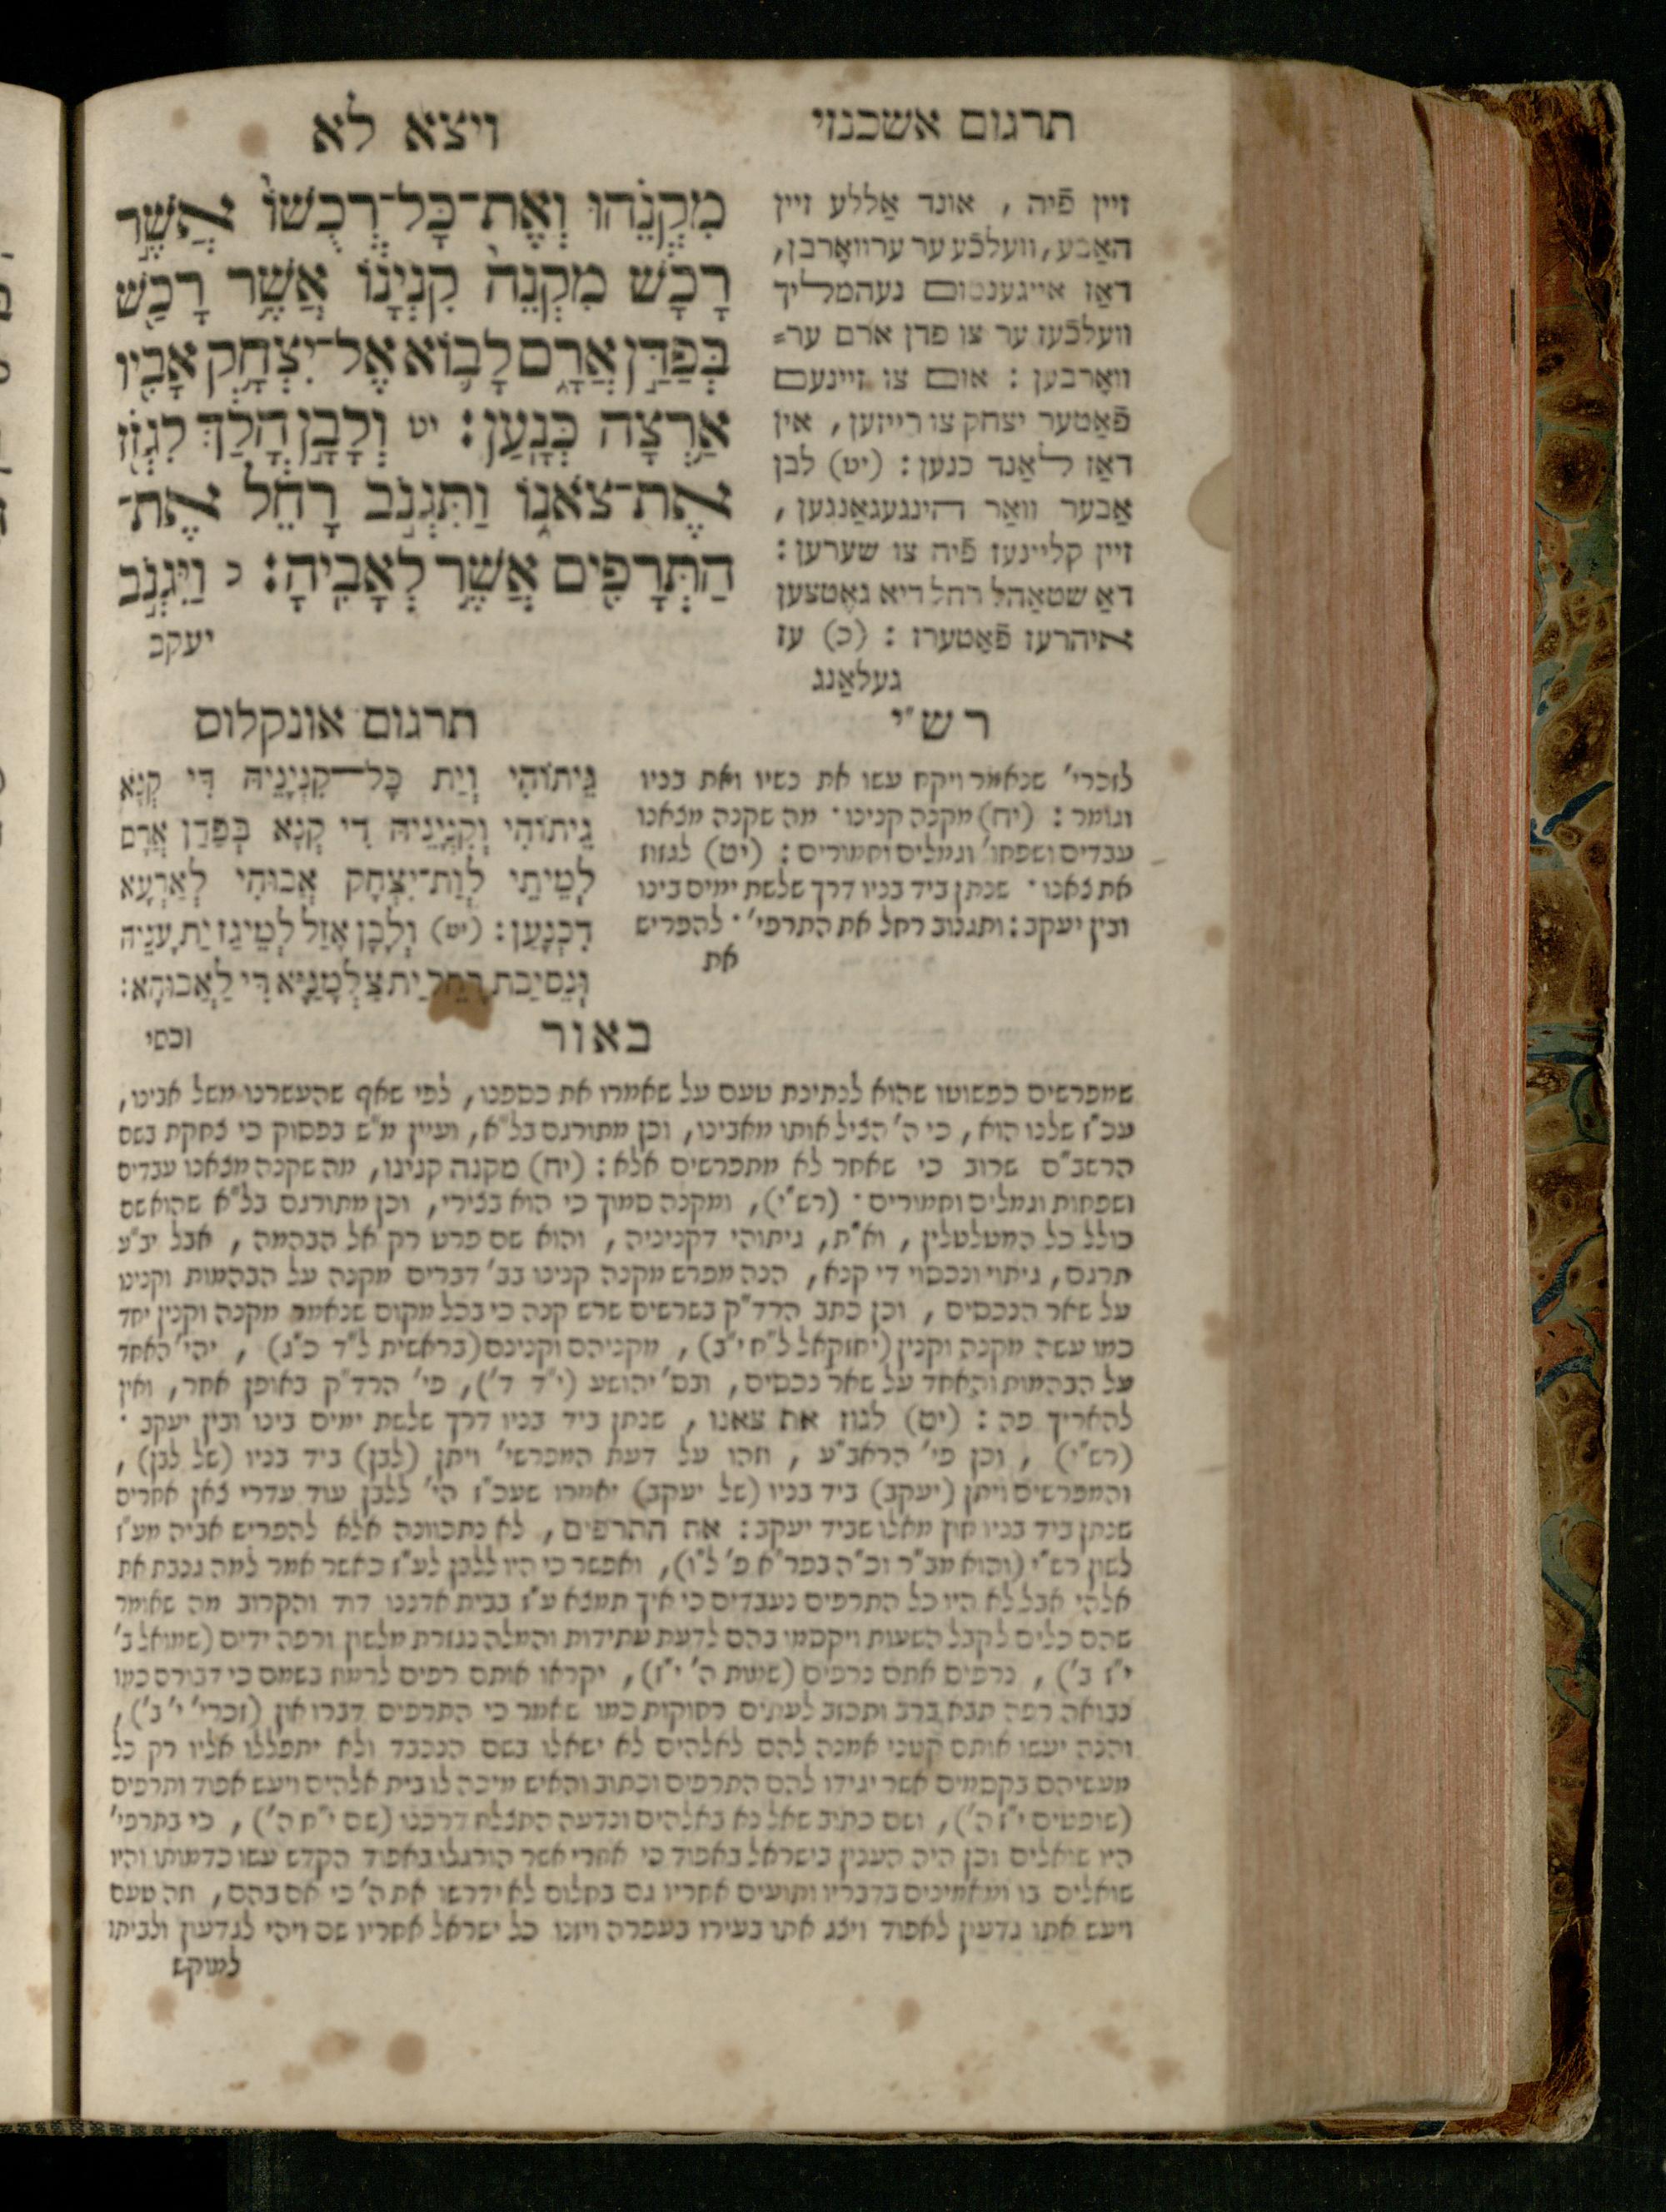 תרגום אשכנזי
ויצא לא
מִקְנֵ֗הוּ וְאֶת־כָּל־רְכֻשׁוֹ֙ אֲשֶׁ֣ר
רָכָ֔שׁ מִקְנֵה֙ קִנְיָנ֔וֹ אֲשֶׁ֥ר רָכַ֖שׁ
בְּפַדַּ֣ן אֲרָ֑ם לָב֛וֹא אֶל־יִצְחָ֥ק אָבִ֖יו
אַ֥רְצָה כְּנָֽעַן׃ יט וְלָבָ֣ן הָלַ֔ךְ לִגְזֹ֖ז
אֶת־צֹאנ֑וֹ וַתִּגְנֹ֣ב רָחֵ֔ל אֶת־
הַתְּרָפִ֖ים אֲשֶׁ֥ר לְאָבִֽיהָ׃ כ וַיִּגְנֹ֣ב
יעקב
זיין פֿיה , אונד אַללע זיין
האַבע, וועלכֿע ער ערוואָרבן,
דאַז אייגענטום נעהמליך
וועלכֿעז ער צו פדן ארם ער=
וואָרבען : אום צו זיינעם
פֿאַטער יצחק צו רייזען, אין
דאַז לאַנד כנען : (יט) לבן
אַבער וואַר הינגעגאַנגען ,
זיין קליינעז פֿיה צו שערען :
דאַ שטאַהל רחל דיא געטצען
איהרעז פֿאַטערז : (כ) עז
געלאַנג
רש״י
לזכרי׳ שנאמר ויקח עשו את נשיו ואת בניו
וגומר : (יח) מקנה קנינו · מה שקנה מצאנו
עבדים ושפחו׳ וגמלים וחמורים : (יט) לגזוז
את צאנו · שנתן ביד בניו דרך שלשת ימים בינו
ובין יעקב : ותגנוב רחל את התרפי׳ · להפריש
את
תרגום אונקלוס
גֵּיתוֹהִי וְיַת כָּל־קִנְיָנֵיהּ דִּי קְנָא
גֵּיתוֹהִי וְקִנְיָנֵיהּ דִי קְנָא בְּפַדַּן אֲרָם
לְמֵיתֵי לְוַת־יִצְחָק אֲבוּהִי לְאַרְעָא
דִכְנָעַן : (יט) וְלָבָן אֲזַל לְמֵיגַז יַת עָנֵיהּ
וּנְסֵיבַת רָחֵל יַת צַלְמָנַיָּא דִּי לַאֲבוּהָא :
וכסי
באור
שמפרשים כפשוטו שהוא לנתינת טעם על שאמרו את כספנו, לפי שאף שהעשרנו משל אבינו,
עכ״ז שלנו הוא, כי ה׳ הציל אותו מאבינו, וכן מתורגם בל״א, ועיין מ״ש בפסוק כי צחקת בשם
הרשב״ם שרוב כי שאחר לא מתפרשים אלא : (יח) מקנה קנינו, מה שקנה מצאנו עבדים
ושפחות וגמלים וחמורים · (רש״י), ומקנה סמוך כי הוא בצירי, וכן מתורגם בל״א שהוא שם
כולל כל המטלטלין, וא״ת, גיתוהי דקניניה, והוא שם פרט רק אל הבהמה, אבל יב״ע
תרגם, גיתוי ונכסוי די קנא, הנה מפרש מקנה קנינו בב׳ דברים מקנה על הבהמות וקנינו
על שאר הנכסים, וכן כתב הרד״ק בשרשים שרש קנה כי בכל מקום שנאמר מקנה וקנין יחד
כמו עשה מקנה וקנין (יחזקאל ל״ח י״ב), מקניהם וקנינם (בראשית ל״ד כ״ג), יהי׳ האחד
על הבהמות והאחד על שאר נכסים, ובס׳ יהושע (י״ד ד׳), פי׳ הרד״ק באופן אחר, ואין
להאריך פה : (יט) לגוז את צאנו, שנתן ביד בניו דרך שלשת ימים בינו ובין יעקב ·
(רש״י), וכן פי׳ הראב״ע, וזהו על דעת המפרשי׳ ויתן (לבן) ביד בניו (של לבן),
והמפרשים ויתן (יעקב) ביד בניו (של יעקב) יאמרו שעכ״ז הי׳ ללבן עוד עדרי צאן אחרים
שנתן ביד בניו חוץ מאלו שביד יעקב : את התרפים, לא נתכוונה אלא להפריש אביה מע״ז
לשון רש״י (והוא מב״ר וכ״ה בפר״א פ׳ ל״ו), ואפשר כי היו ללבן לע״ז כאשר אמר למה גנבת את
אלהי אבל לא היו כל התרפים נעבדים כי איך תמצא ע״ז בבית אדננו דוד והקרוב מה שאומר
שהם כלים לקבל השעות ויקסמו בהם לדעת עתידות והמלה נגזרת מלשון ורפה ידים (שמואל ב׳
י״ז ב׳), נרפים אתם נרפים (שמות ה׳ י״ז), יקראו אותם רפים לרמוז בשמם כי דבורם כמו
נבואה רפה תבא ברב ותכזב לעתים רחוקות כמו שאמר כי התרפים דברו און (זכרי׳ י׳ ב׳),
והנה יעשו אותם קטני אמנה להם לאלהים לא ישאלו בשם הנכבד ולא יתפללו אליו רק כל
מעשיהם בקסמים אשר יגידו להם התרפים וכתוב והאיש מיכה לו בית אלהים ויעש אפוד ותרפים
(שופטים י״ז ה׳), ושם כתיב שאל נא באלהים ונדעה התצלח דרכנו (שם י״ח ה׳), כי בתרפי׳
היו שואלים וכן היה הענין בישראל באפוד כי אחרי אשר הורגלו באפוד הקדש עשו כדמותו והיו
שואלים בו ומאמינים בדבריו ותועים אחריו גם בחלום לא ידרשו את ה׳ כי אם בהם, וזה טעם
ויעש אתו גדעון לאפוד ויצג אתו בעירו בעפרה ויזנו כל ישראל אחריו שם ויהי לגדעון ולביתו
למוקש